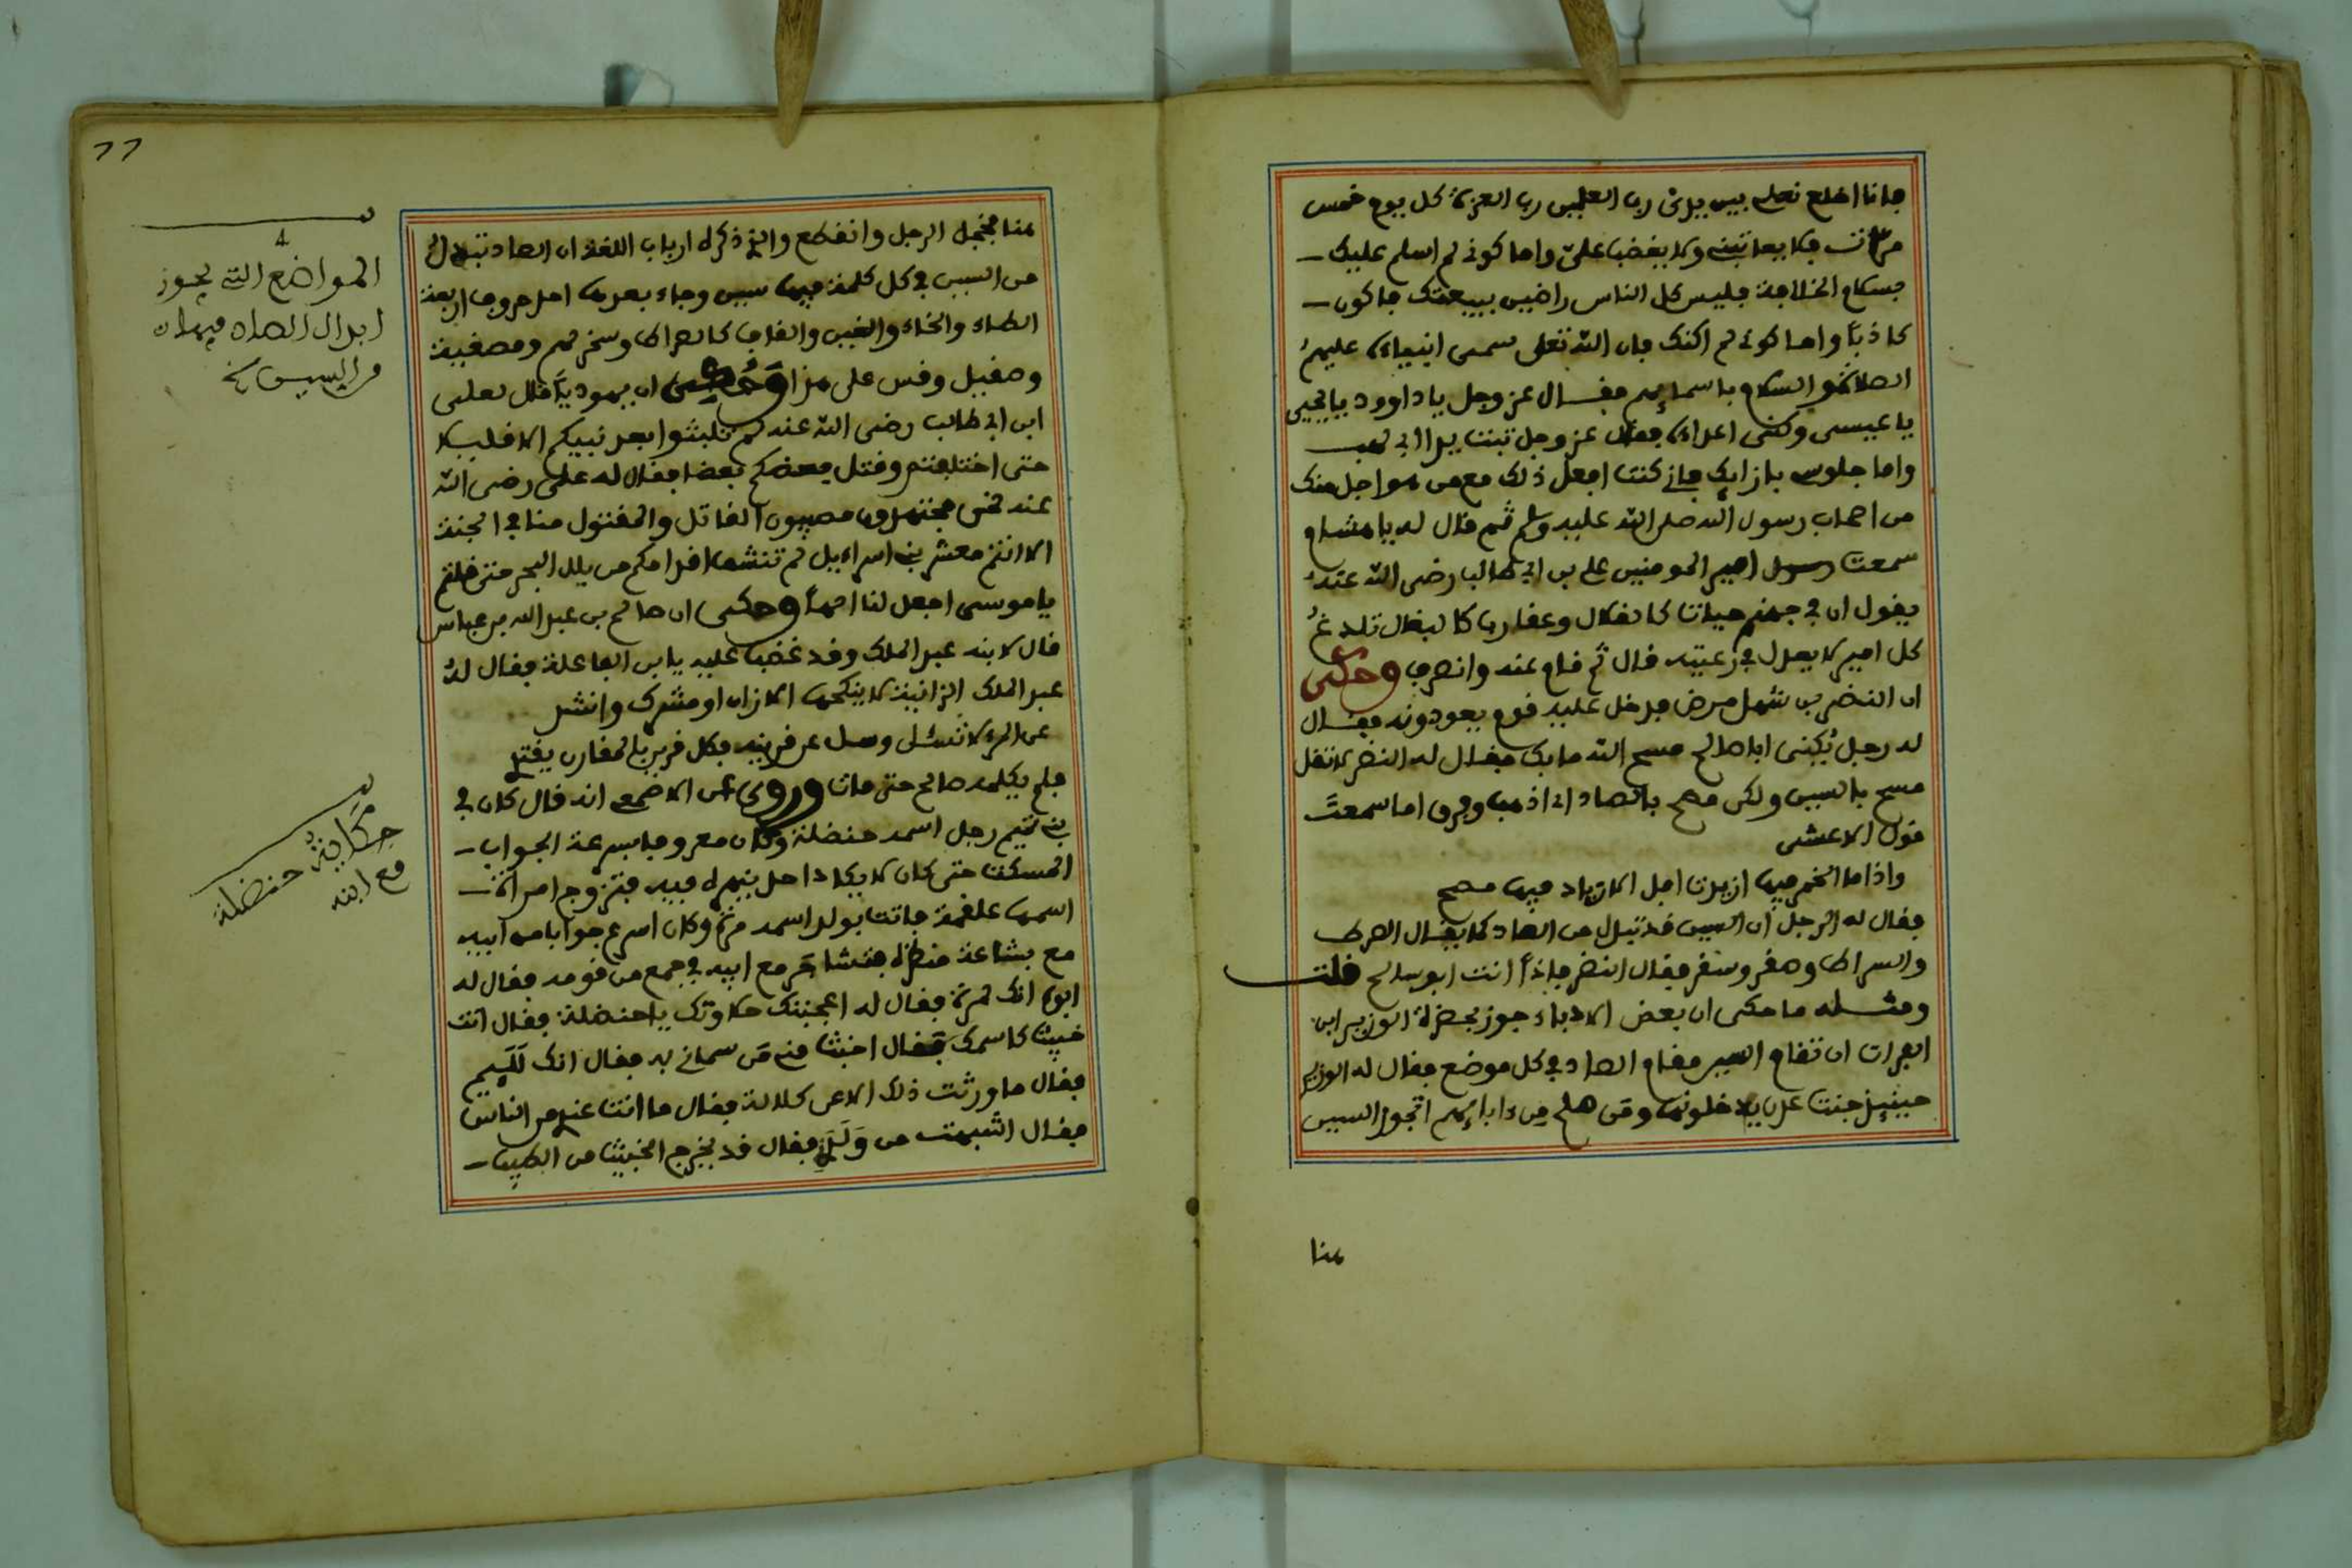 فانا اخلع نعلي بين يدي رب العلمين رب العزة كل يوم خمس
مرات فلا يعاتبني ولا يغضب علي واما كوني لم اسلم عليك
بسلام الخلافة فليس كل الناس راضين ببيعتك فاكون
كاذبا واما كوني لم اكنك فان الله تعلى سمى انبياءه عليهم
الصلاة والسلام باسمائهم فقال عز وجل يا داوود يا يحيى
يا عيسى وكنى اعداءه فقال عز وجل تبت يدا ابي لهب
واما جلوسي بازائك فاني كنت افعل ذلك مع من هو اجل منك
من اصحاب رسول الله صلى الله عليه وسلم ثم قال له يا هشام
سمعت رسول امير المومنين علي بن ابي طالب رضي الله عنه
يقول ان في جهنم حيات كالقلال وعقارب كالبغال تلدغ
كل امير لا يعدل في رعيته قال ثم قام عنه وانصرف وحكى
ان النضر بن شميل مرض فدخل عليه قوم يعودونه فقال
له رجل يكنى ابا صالح مسح الله ما بك فقال له النضر لا تقل
مسح بالسين ولكن مصح بالصاد اي اذهب وفرق اما سمعت
قول الاعشى
واذا ما الخمر فيها ازبدت افل الازباد فيها مصح
فقال له الرجل ان السين قد تبدل من الصاد كما يقال الصراط
والسراط وصقر وسقر فقال النضر فاذا انت ابو سالح قلت
ومثله ما حكى ان بعض الادباء جوز بحضرة الوزير ابن
الفرات ان تقام السين مقام الصاد في كل موضع فقال له الوزير
حينئذ جنت عدن يدخلونها ومن صلح من ءابائهم اتجوز السين
هنا
77
هنا فخجل الرجل وانقطع والذي ذكره ارباب اللغة ان الصاد تبدل
من السين في كل كلمة فيها سين وجاء بعدها احد حروف اربعة
الطاء والخاء والغين والقاف كالصراط وسخر لهم ومصغبة
وصقيل وقس على هذا وحكى ان يهوديا قال لعلي
ابن ابي طالب رضي الله عنه لم تلبثوا بعد نبيكم الا قليلا
حتى اختلفتم وقتل بعضكم بعضا فقال له علي رضي الله
عنه نحن مجتهدون مصيبون القاتل والمقتول منا في الجنة
الا انتم معشر بني اسراءيل لم تنشف اقدامكم من بلل البحر حتى قلتم
يا موسى اجعل لنا الها وحكى ان صالح بن عبد الله بن عباس
قال لابنه عبد الملك وقد غضب عليه يا ابن الفاعلة فقال له
عبد الملك الزانية لا ينكحها الا زان او مشرك وانشد
عن المرء لا تسئل وسل عن قرينه فكل قرين بالمقارن يقتد
فلم يكلمه صالح حتى مات وروي عن الاصمعي انه قال كان في
بني تميم رجل اسمه حنضلة وكان معروفا بسرعة الجواب
المسكت حتى كان لا يكاد احد ينهره فيه فتزوج امراة
اسمها علقمة فاتت بولد اسمه مرة وكان اسرع جوابا من ابيه
مع بشاعة منظره فتشاجر مع ابيه في جمع من قومه فقال له
ابوه انك لمرة فقال له اعجبتك حلاوتك يا حنضلة فقال انت
خبيث كاسمك فقال اخبث مني من سماني به فقال انك للئيم
فقال ما ورثت ذلك الا عن كلالة فقال ما انت عندي من الناس
فقال اشبهت من ولدني فقال قد يخرج الخبيث من الطيب
المواضع التي يجوز
ابدال الصاد فيها
من السين
حكاية حنضلة
مع ابنه